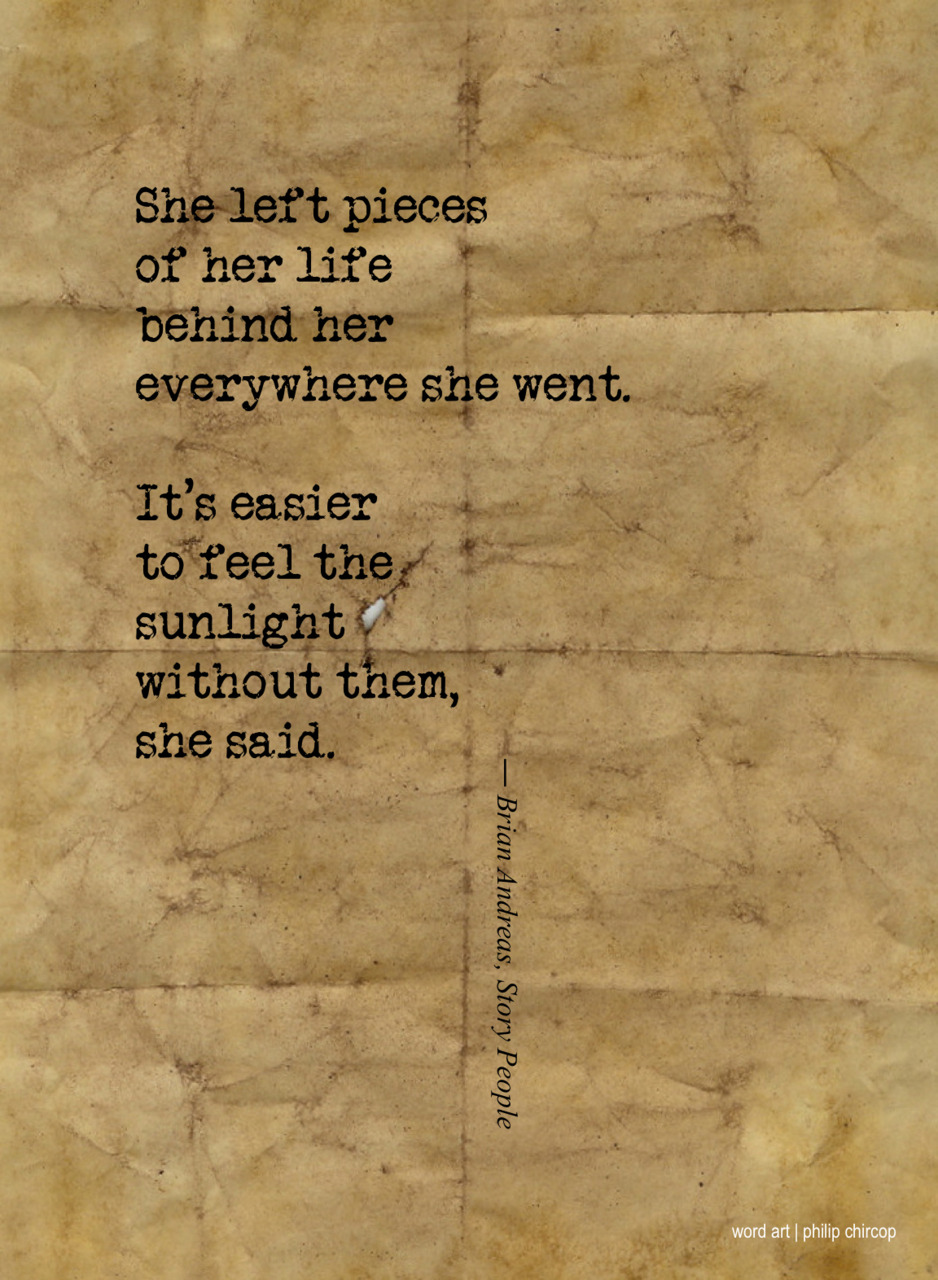 She left pieces
of her life
behind her
everywhere she went.
It’s easier
to feel the
sunlight
without them,
she said.
— Brian Andreas, Story People
word art | philip chircop